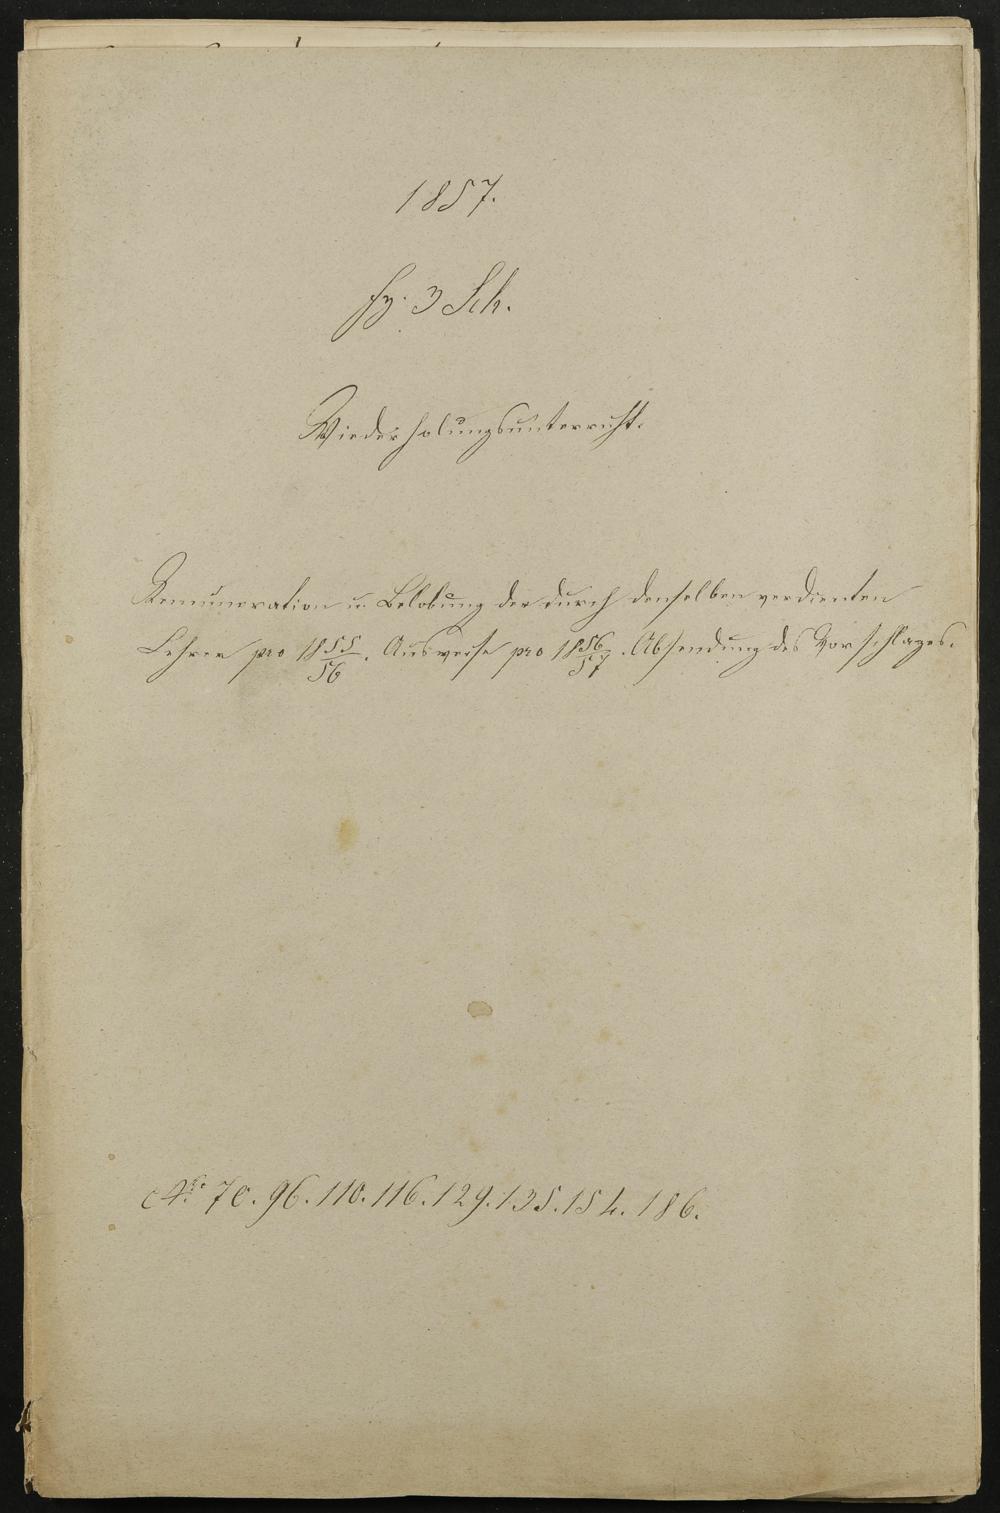 1857.
Fz. 3 Sch.
Wiederholungsunterricht.
Remuneration u. Belobung der durch denselben verdienten
Lehrer pro 1855/56. Ausweise pro 1856/57. Absendung des Vorschlages.
No 70. 96. 110. 116. 129. 135. 154. 186.